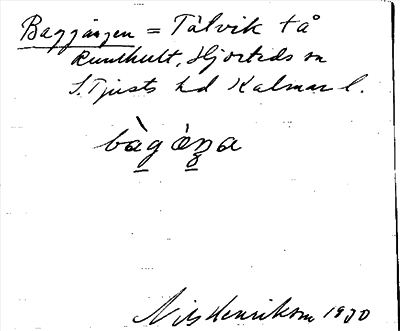 Baggången = Tålvik t å
Runthult, Hjorteds sn
S. Tjusts hd Kalmar l.
bàgåŋa
Nils Henrikson 1930